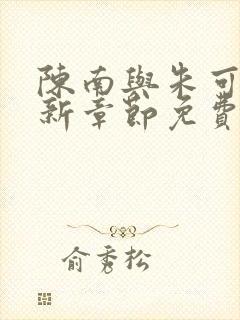 陳南與朱可
新章節免費
俞秀松